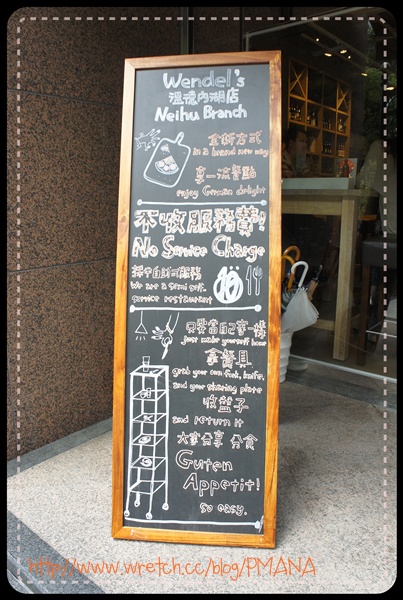 Wendel's
溫德內湖店
Neihu Branch
全新方式
in a brand new way
享一流餐點
enjoy German delight
不收服務費!
No Service Charge
採半自助式服務
We are a semi self.
service restaurant
只要當自己家一樣
Just make yourself home
拿餐具
grab your own fork, knife,
and your sharing plate
收盤子
and return it
大家分享 分食
Guten
Appetit!
so easy.
http://www.wretch.cc/blog/PMANA